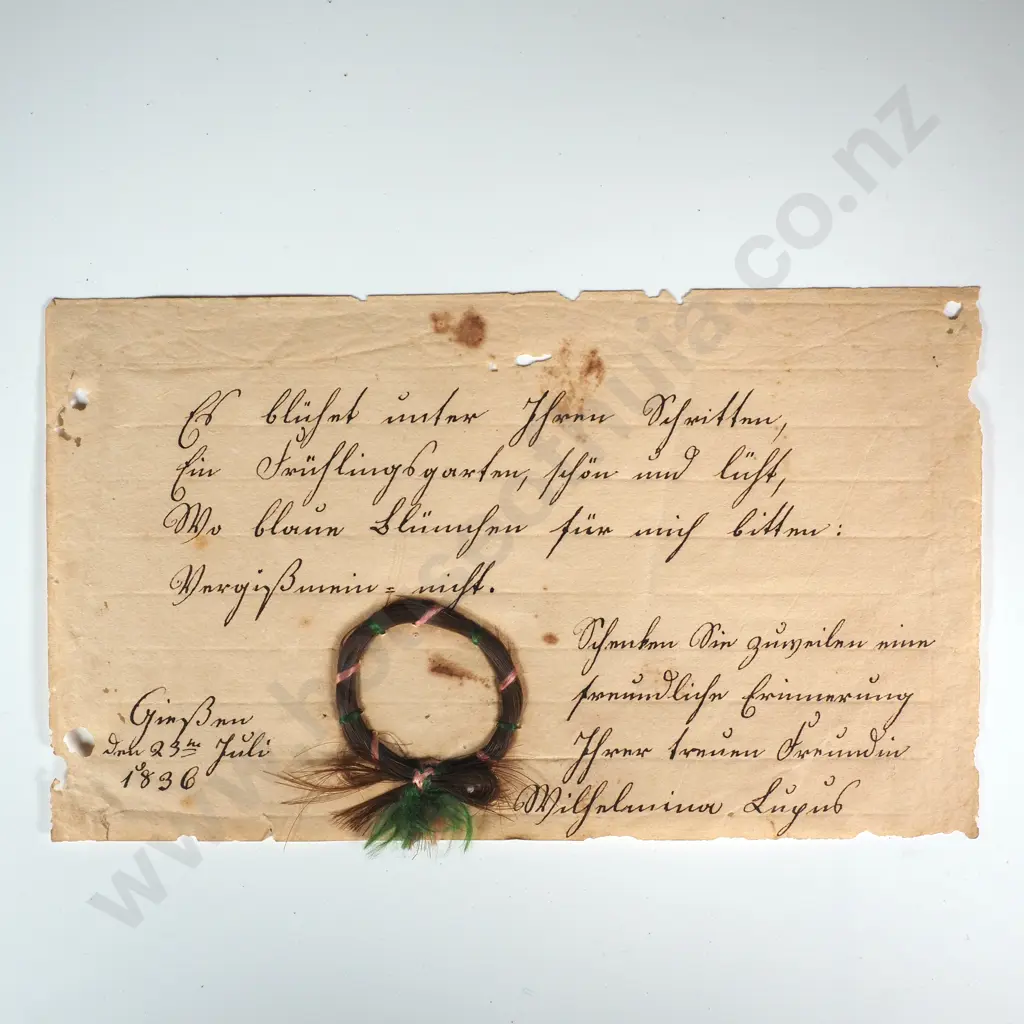 Es blühet unter Ihren Schritten,
Ein Frühlingsgarten, schön und lücht,
Wo blaue Blümchen für mich bitten:
Vergißmein = nicht.
Schenken Sie zuweilen eine
freundliche Erinnerung
Ihrer treuen Freundin
Wilhelmina Lupus
Gießen
den 23ten Juli
1836